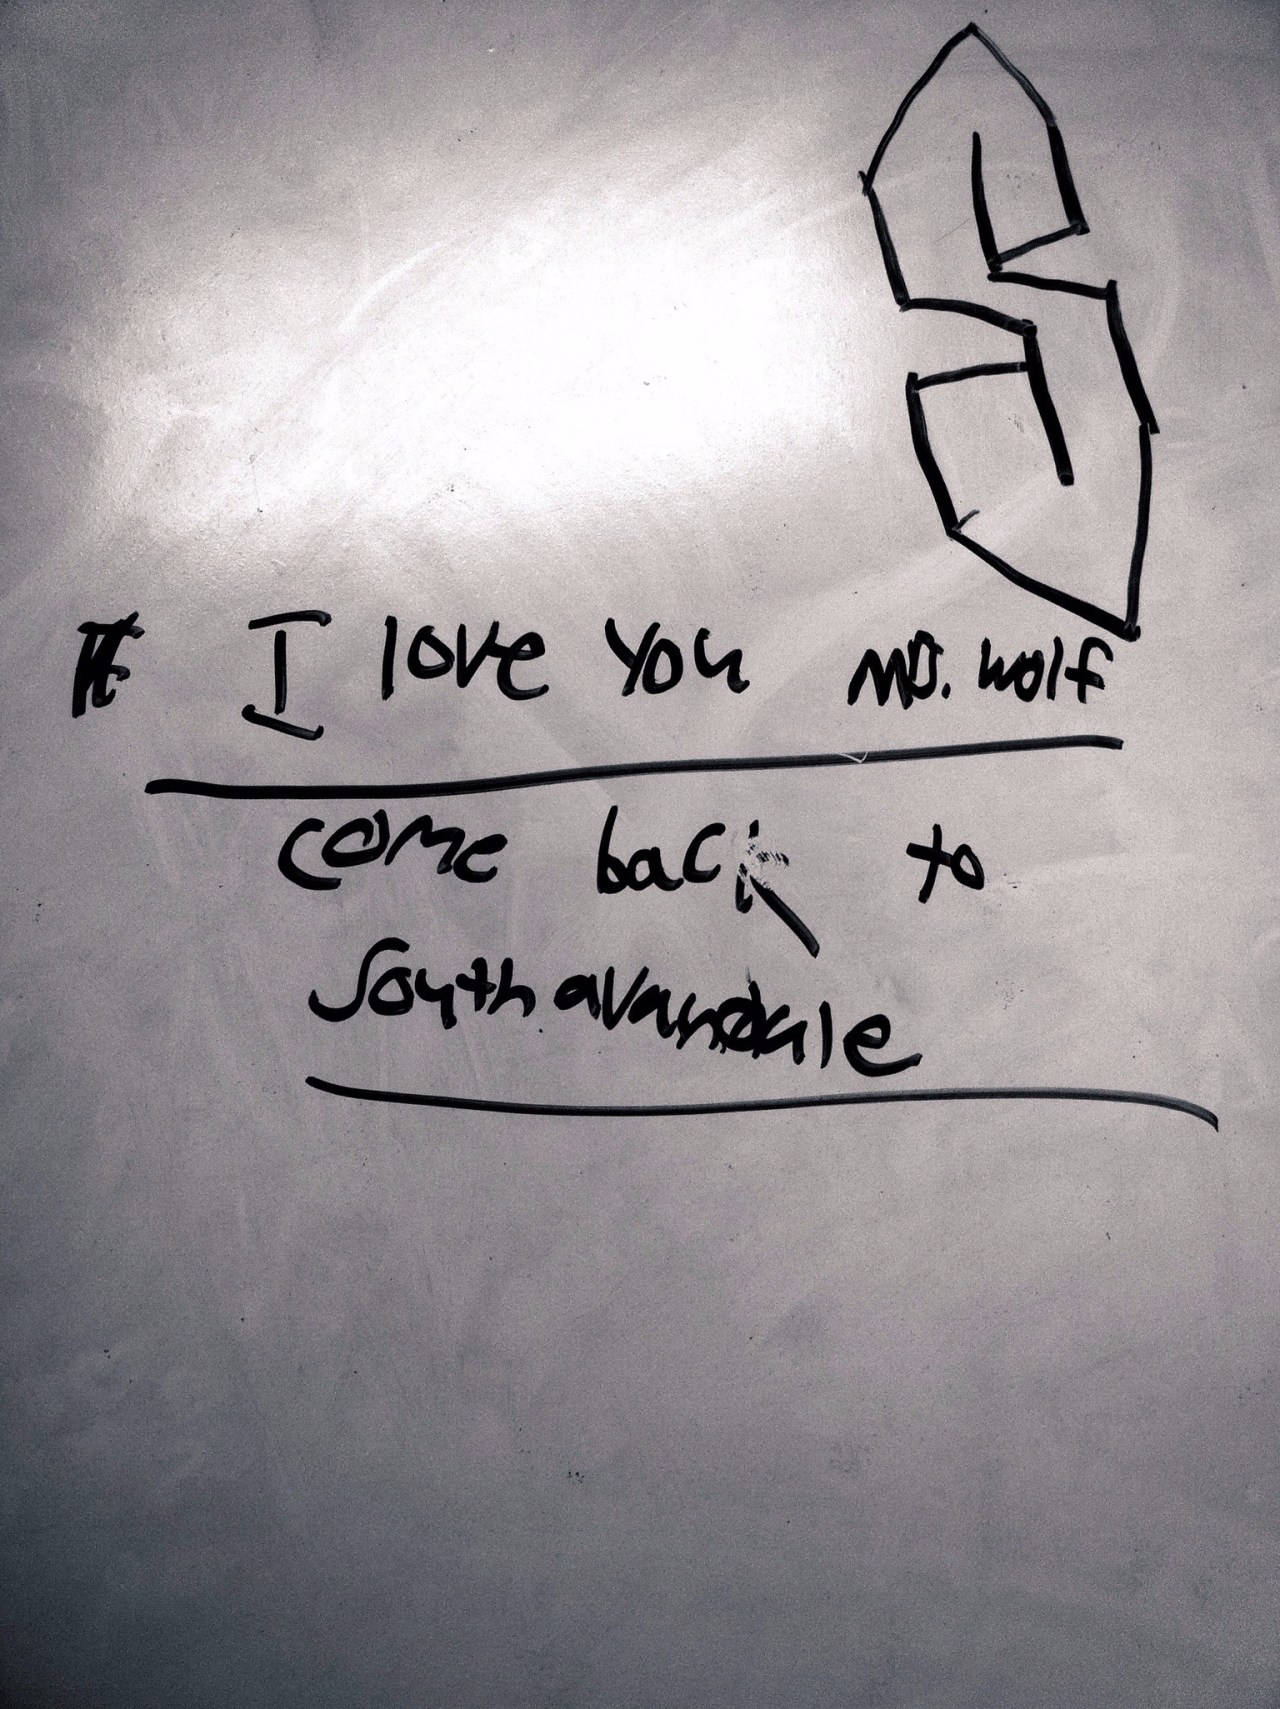 I love you Ms. Wolf
come back to
South avandale